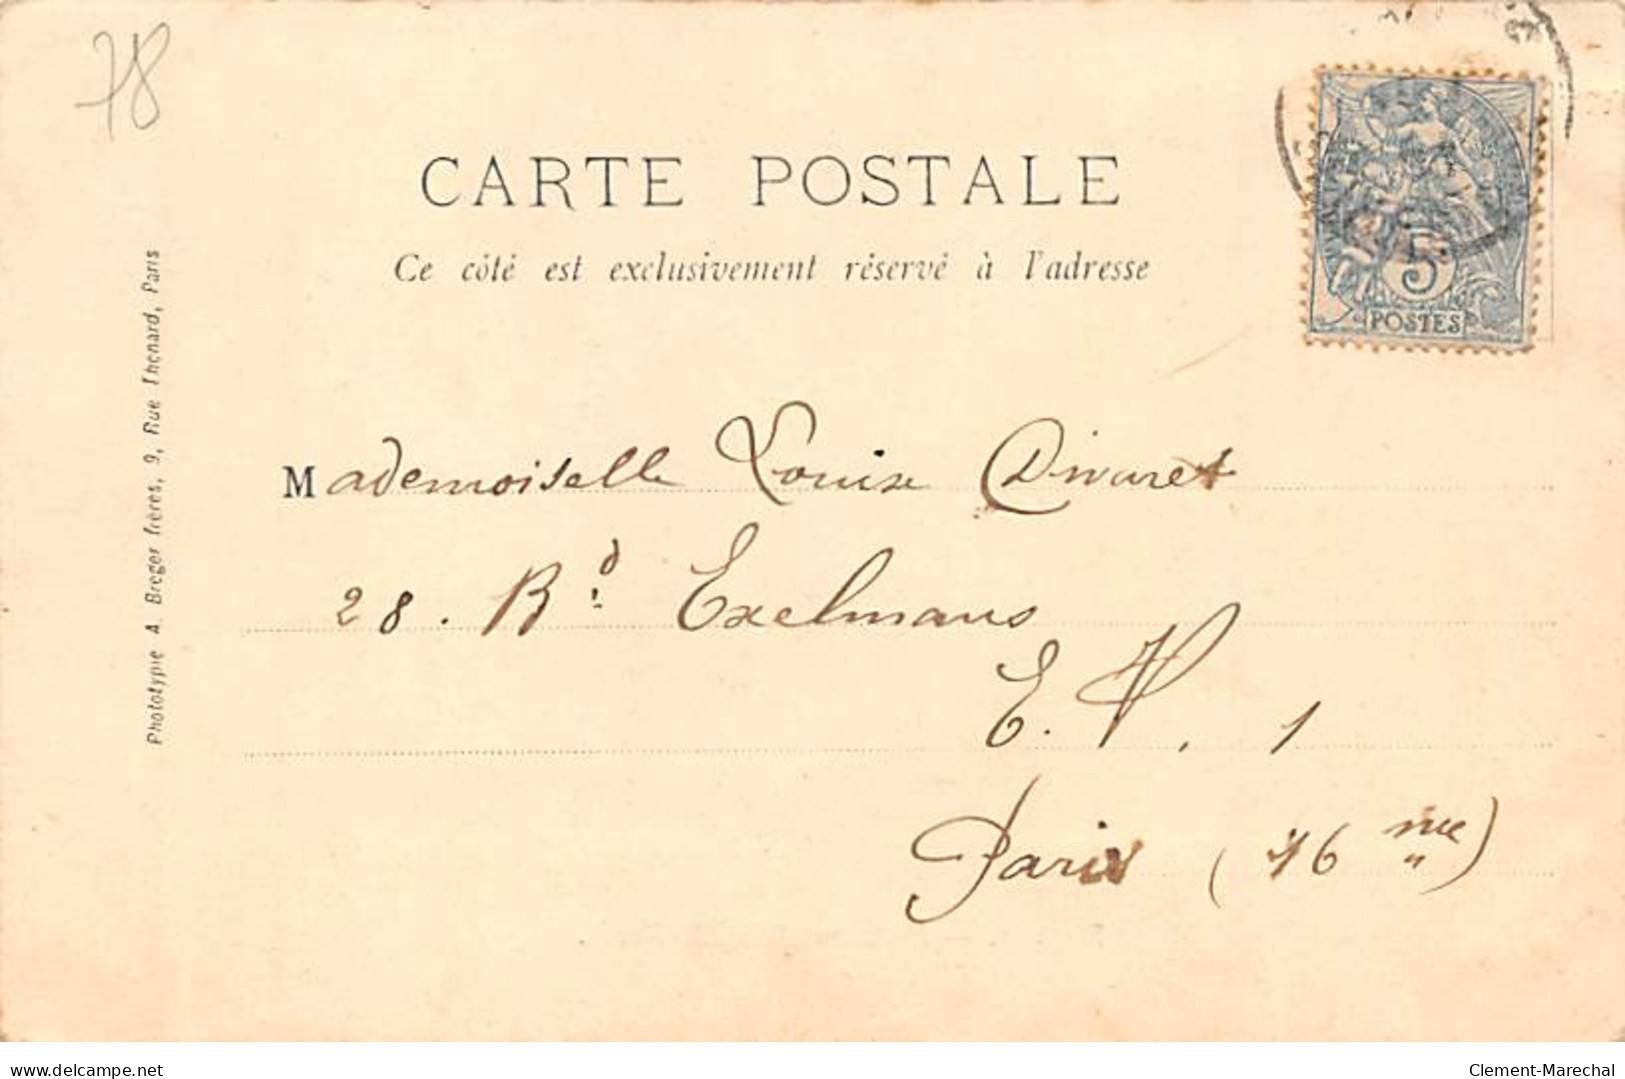 78
CARTE POSTALE
Ce côté est exclusivement réservé à l'adresse
5
POSTES
Phototypie A. Breger frères, 9, Rue Thénard, Paris
Mademoiselle Louise Divaret
28. Bd Exelmans
E. V. 1
Paris (16me)
delcampe.net
Clement-Marechal